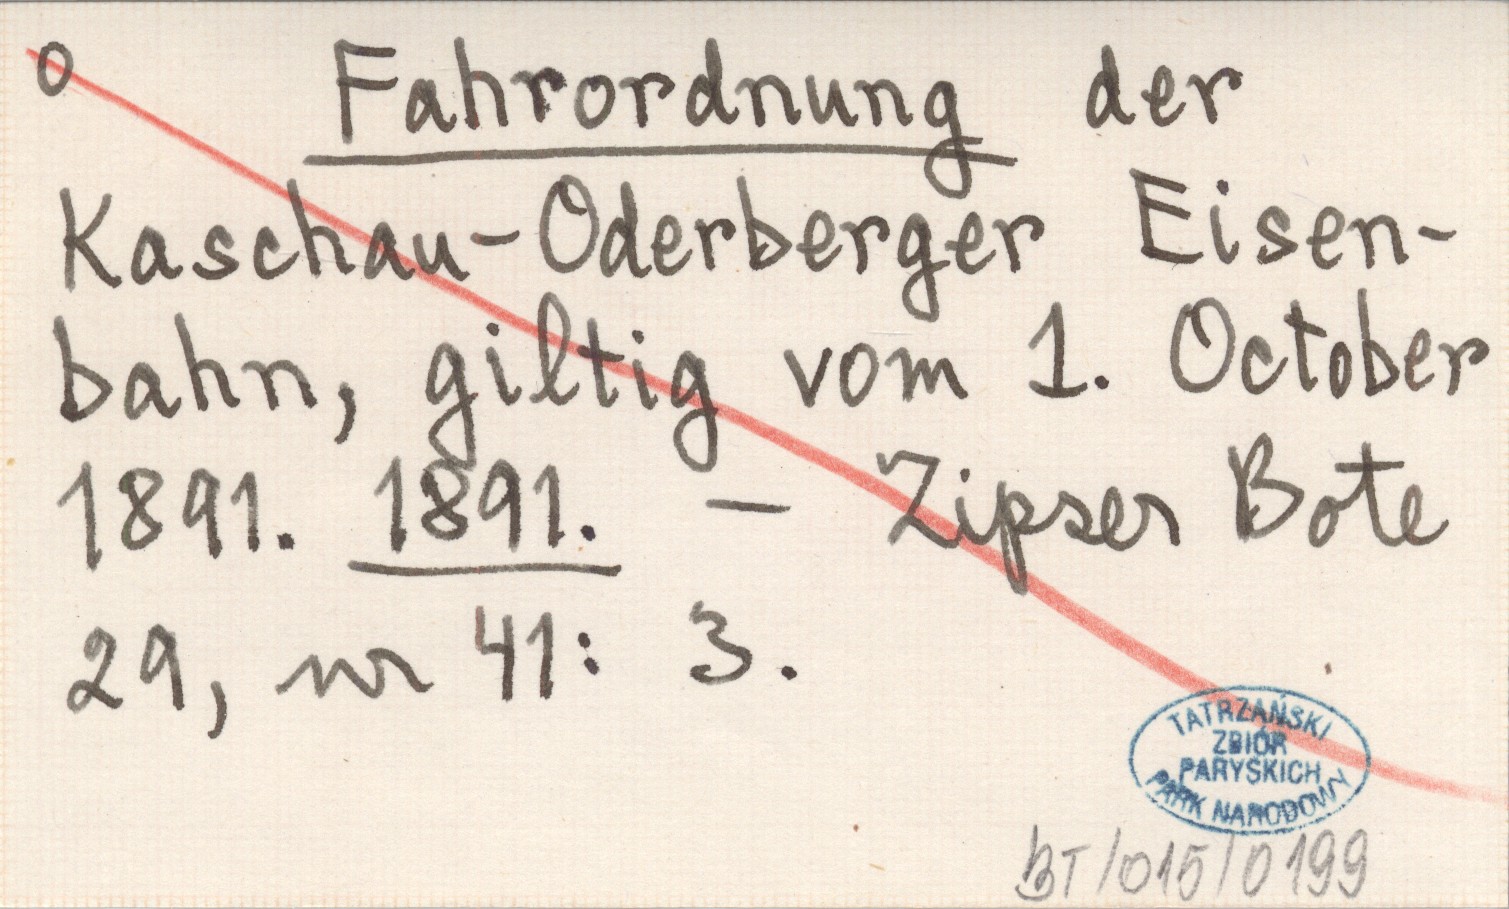 O Fahrordnung der
Kaschau-Oderberger Eisen-
bahn, giltig vom 1. October
1891. 1891. — Zipser Bote
29, nr 41: 3.
TATRZAŃSKI
ZBIÓR
PARYSKICH
PARK NARODOWY
BT/015/0199